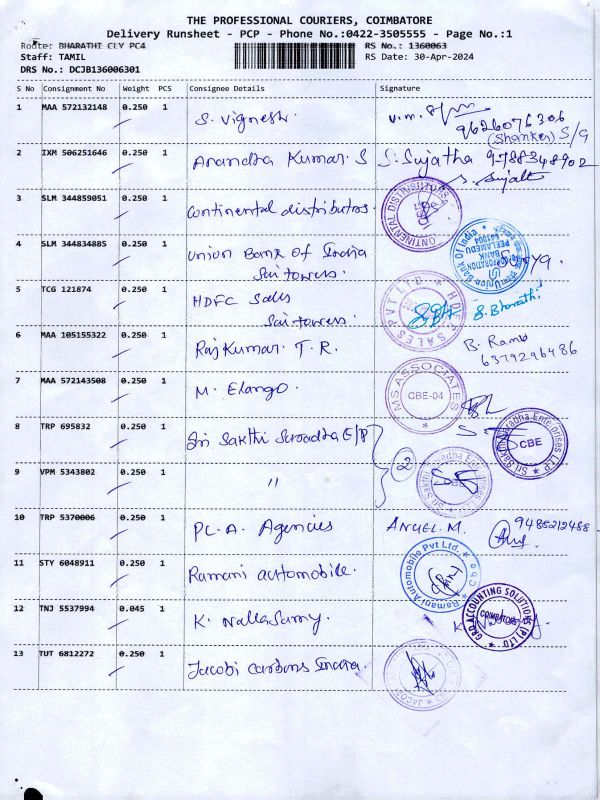 THE PROFESSIONAL COURIERS, COIMBATORE
Delivery Runsheet - PCP - Phone No.:0422-3505555 - Page No.:1
Route: BHARATHI CLY PC4 RS No.: 1360063
Staff: TAMIL RS Date: 30-Apr-2024
DRS No.: DCJB136006301
S No Consignment No Weight PCS Consignee Details Signature
1 MAA 572132148 0.250 1 S. Vignesh. V.M.
9626076306
(Shanker) S/G
2 IXM 506251646 0.250 1 Anandha Kumar. S S. Sujatha 9788348902
S. Sujatha
3 SLM 344859051 0.250 1 Continental distributros. CONTINENTAL DISTRIBUTORS
4 SLM 344834885 0.250 1 Union Bank Of India Union Bank of India
Sai towers. PEELAMEDU 641004
5 TCG 121874 0.250 1 HDFC Sales HDFC SALES PVT LTD. B. Bharathi
Sai towers.
6 MAA 105155322 0.250 1 Rajkumar. T. R. B. Ramo
6379296486
7 MAA 572143508 0.250 1 M. Elango. MS ASSOCIATES CBE-04
8 TRP 695832 0.250 1 Sri Sakthi Saradha E/P Sri Sakthi Saradha Enterprises LLP CBE
9 VPM 5343802 0.250 1 " 2 Sri Sakthi Saradha Enterprises LLP
10 TRP 5370006 0.250 1 PL. A. Agencies ANGEL. M. 9486212488
11 STY 6048911 0.250 1 Ramani automobile. Ramani Automobile Pvt Ltd. Cbe
12 TNJ 5537994 0.045 1 K. Nallasamy. GRD ACCOUNTING SOLUTIONS (P) LTD COIMBATORE
13 TUT 6812272 0.250 1 Jacobi Carbons India. JACOBI